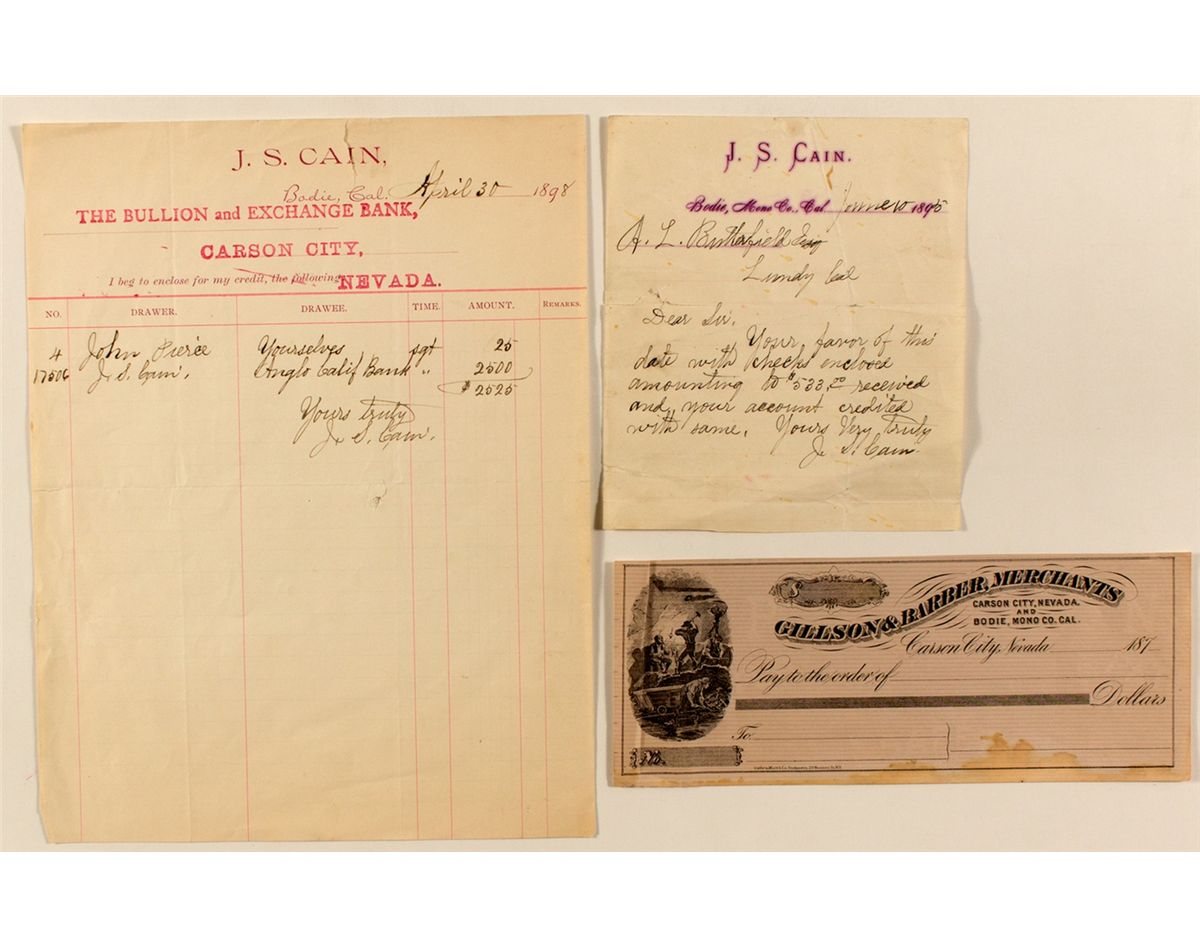 J. S. CAIN,
Bodie, Cal. April 30 1898
THE BULLION and EXCHANGE BANK,
CARSON CITY,
I beg to enclose for my credit, the following
NEVADA.
NO. DRAWER. DRAWEE. TIME. AMOUNT. REMARKS.
4 John Pierce Yourselves sgt 25
17506 J. S. Cain. Anglo Calif Bank " 2500
$2525
Yours truly
J. S. Cain.
J. S. CAIN.
Bodie, Mono Co., Cal June 10 1895
A. L. Butterfield Esq
Lundy Cal
Dear Sir.
Your favor of this
date with checks enclosed
amounting to $533. received
and your account credited
with same. Yours Very truly
J. S. Cain.
$
GILLSON & BARBER, MERCHANTS
CARSON CITY, NEVADA.
AND
BODIE, MONO CO. CAL.
Carson City, Nevada 187
Pay to the order of
Dollars
To
No.